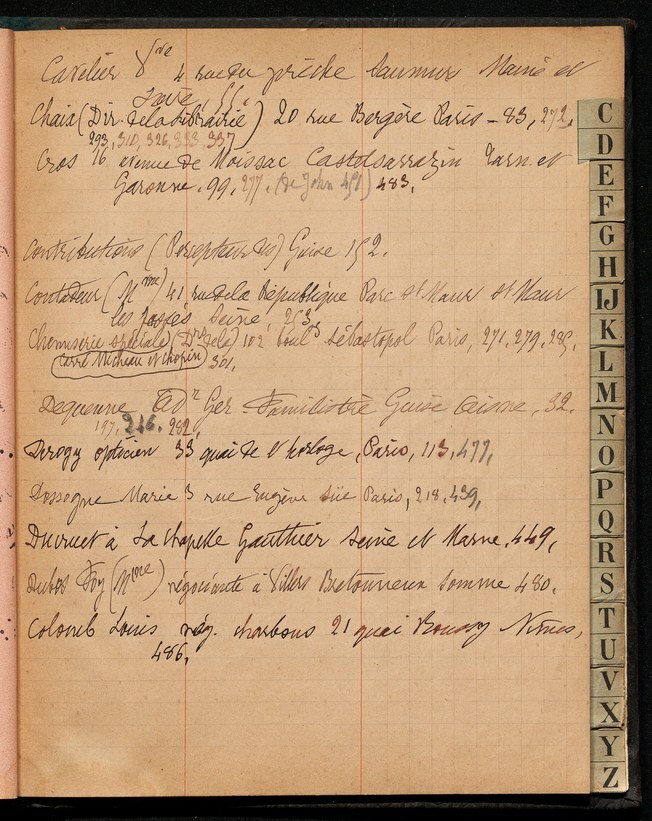 Cavelier Vve 4 rue du prêche Saumur Maine et
Loire, 55.
Chaix (Dir. de la librairie) 20 rue Bergère Paris – 83, 272,
293, 310, 326, 333, 337
Cros 16 avenue de Moissac Castelsarrazin Tarn et
Garonne. 99, 277. (de John 451) 483.
Contributions (Percepteur des) Guise 152.
Contadeur (Mme) 41, rue de la République Parc St Maur St Maur
les fossés Seine, 253
Chemiserie spéciale (Dr de la) 102 boulds Sébastopol Paris, 271, 279, 285,
Carré Micheau et Chopin 301,
Dequenne Adr Ger Familistère Guise Aisne, 32.
197, 246, 282,
Derogy opticien 33 quai de l'horloge, Paris, 113, 477,
Dossogne Marie 3 rue Eugène Süe Paris, 218, 439,
Ducruet à La Chapelle Gauthier Seine et Marne, 449,
Dubos Foy (Mme) négociante à Villers Bretonneux Somme 480.
Colomb Louis nég. charbons 21 quai Roussy Nîmes,
486,
C
D
E
F
G
H
IJ
K
L
M
N
O
P
Q
R
S
T
U
V
X
Y
Z